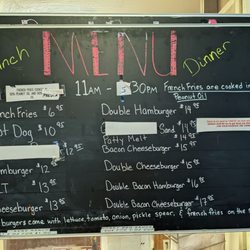 nch MENU Dinner
11AM - 5:30PM
French Fries are cooked in
Peanut Oil
nch Fries $6.95
ot Dog $10.95
12.95
mburger $12.95
LT $13.95
heeseburger $13.95
Double Hamburger $14.95
Sand $14.95
Patty Melt
Bacon Cheeseburger $15.95
Double Cheeseburger $15.
Double Bacon Hamburger $16.95
Double Bacon Cheeseburger $17.95
burgers come with lettuce, tomato, onion, pickle spear, & french fries on the s